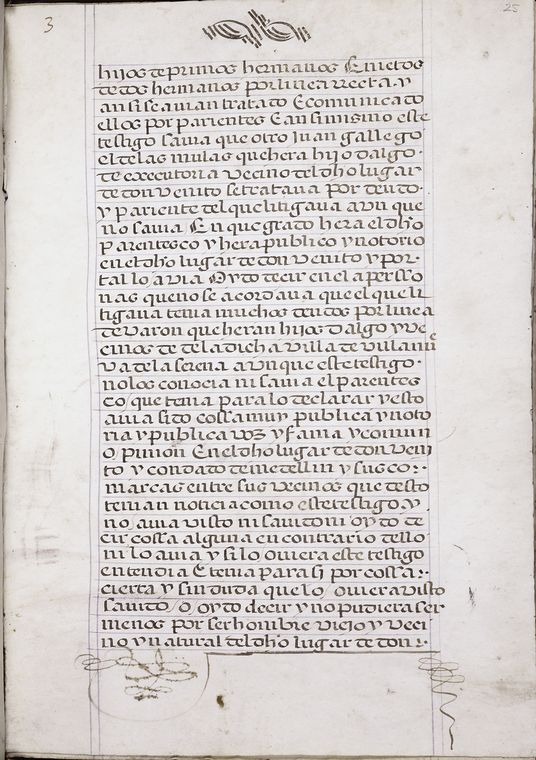 3
25
hijos de primos hermanos E nietos
de dos hermanos por linea rrecta y
ansi se avian tratado E comunicado
ellos por parientes E ansimismo este
testigo savia que otro Juan gallego
el de las mulas que hera hijodalgo
de executoria vecino del dho lugar
de don venito se tratava por deudo
y pariente del que litigava aunque
no savia En que grado hera el dho
parentesco y hera publico y notorio
en el dho lugar de don venito y por
tal lo avia Oydo decir en el a perso
nas que no se acordava que el que li
tigava tenia muchos deudos por linea
de varon que heran hijosdalgo y ve
cinos de de la dicha villa de villanu
va de la serena aunque este testigo
no los conocia ni savia el parentes
co que tenia para lo declarar y esto
avia sido cossa muy publica y noto
ria y publica voz y fama y comun
opinion En el dho lugar de don veni
to y condado de medellin y sus co
marcas entre sus vecinos que desto
tenian noticia como este testigo y
no avia visto ni savido ni oydo de
cir cossa alguna en contrario dello
ni lo avia y si lo oviera este testigo
entendia E tenia para si por cossa
cierta y sin duda que lo oviera visto
savido o oydo decir y no pudiera ser
menos por ser hombre viejo y veci
no y natural del dho lugar de don